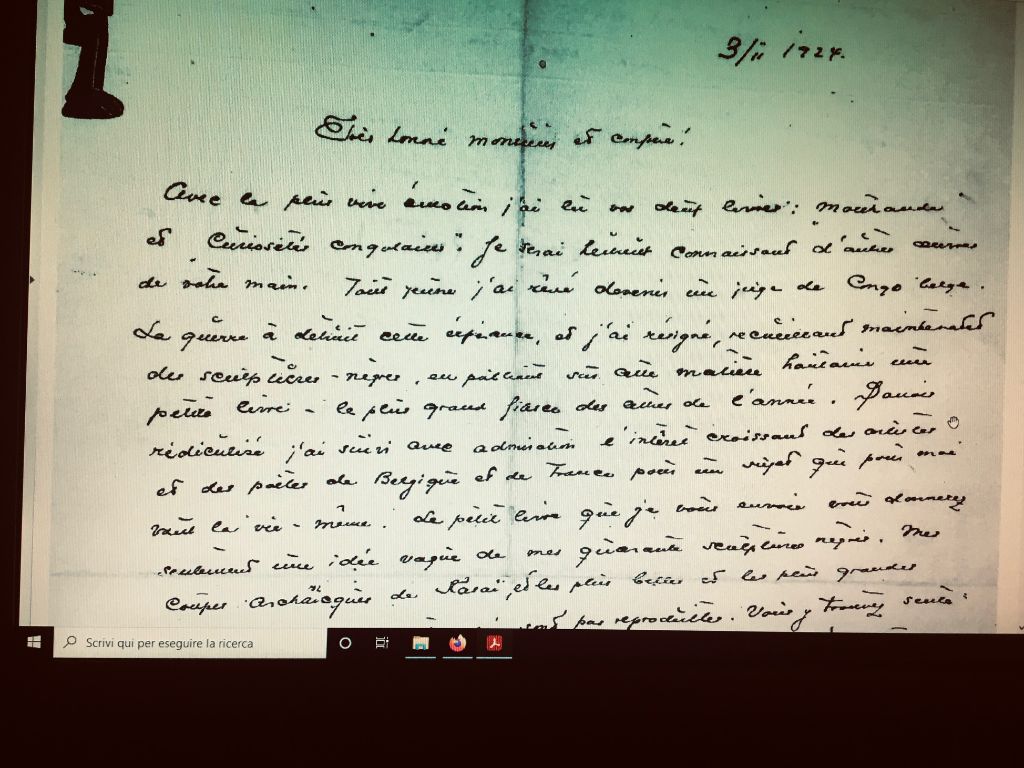 3/II 1924.
Très honoré monsieur et confrère!
Avec la plus vive émotion j'ai lu vos deux livres: "
et "Curiosités congolaises". Je serai heureux connaissant d'autres œuvres
de votre main. Tout jeune j'ai rêvé devenir un juge de Congo belge.
La guerre a détruit cette espérance, et j'ai résigné, recueillant maintenant
des sculptures-nègres, en publiant sur cette matière une
petite livre - le plus grand fiasco des de l'année.
rédiculisé j'ai suivi avec admiration l'intérêt croissant des artistes
et des poètes de Belgique et de France pour un sujet qui pour moi
vaut la vie-même. Le petit livre que je vous envoie vous donnerez
seulement une idée vague de mes quarante sculptures nègres. Mes
coupes archaïques de Kasaï, et les plus belles et les plus grandes
sont pas reproduites. Vous y trouvez
Scrivi qui per eseguire la ricerca